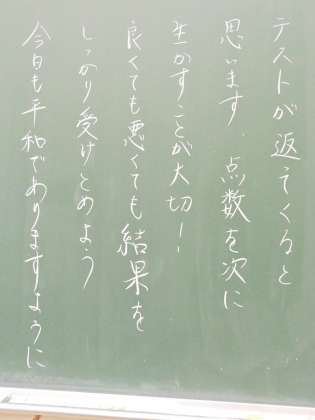 テストが返ってくると
思います。点数を次に
生かすことが大切！
良くても悪くても結果を
しっかり受けとめよう
今日も平和でありますように